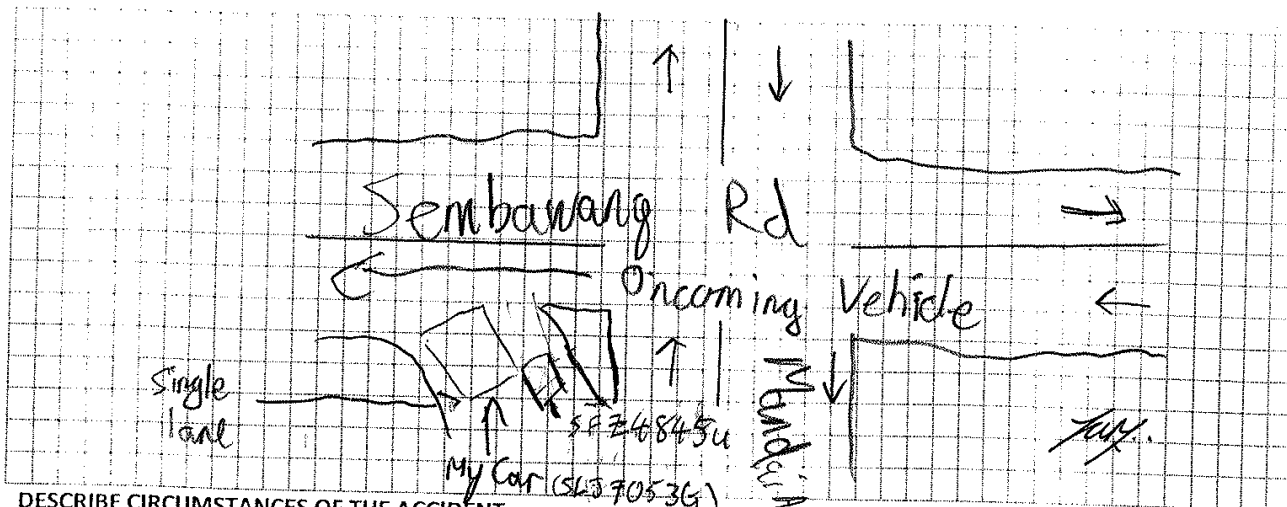 Sembawang Rd
Oncoming Vehicle
Single
lane
SFZ4845U
My Car (SLJ7053G)
Mandai
DESCRIBE CIRCUMSTANCES OF THE ACCIDENT